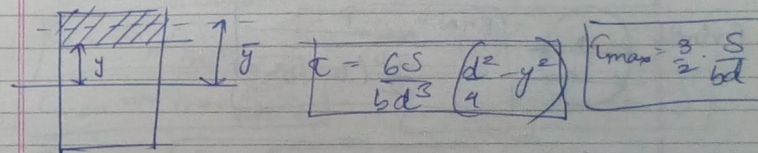 y
ȳ
τ = 6S/bd³ (d²/4 - y²)
τmax = 3/2 · S/bd